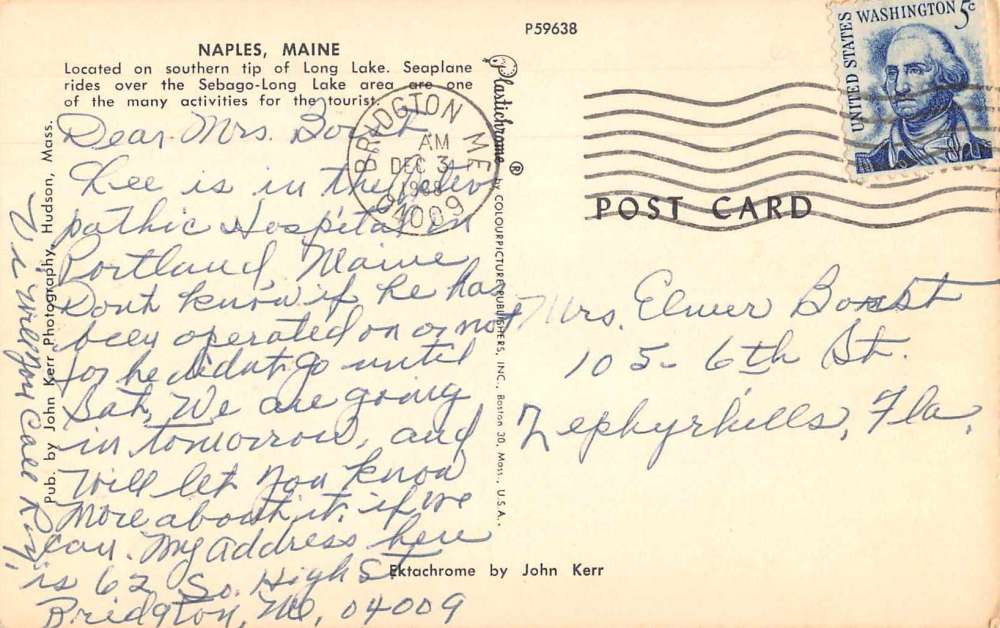 P59638
NAPLES, MAINE
Located on southern tip of Long Lake. Seaplane
rides over the Sebago-Long Lake area are one
of the many activities for the tourist.
Plastichrome ®
by COLOURPICTURE PUBLISHERS, INC., Boston 30, Mass., U.S.A.
Pub. by John Kerr Photography, Hudson, Mass.
UNITED STATES
WASHINGTON 5c
BRIDGTON ME
AM
DEC 3
04009
POST CARD
Dear Mrs. Borst
Lee is in the
pathic Hospital in
Portland, Maine
Dont know if he has
been operated on or not
for he didnt go until
Sat, We are going
in tomorrow, and
Will let you know
More about it, if we
can. My address here
is 62 So. High St
Bridgton, Me, 04009
Mrs. Elmer Borst
105- 6th St.
Zephyrhills, Fla,
Ektachrome by John Kerr